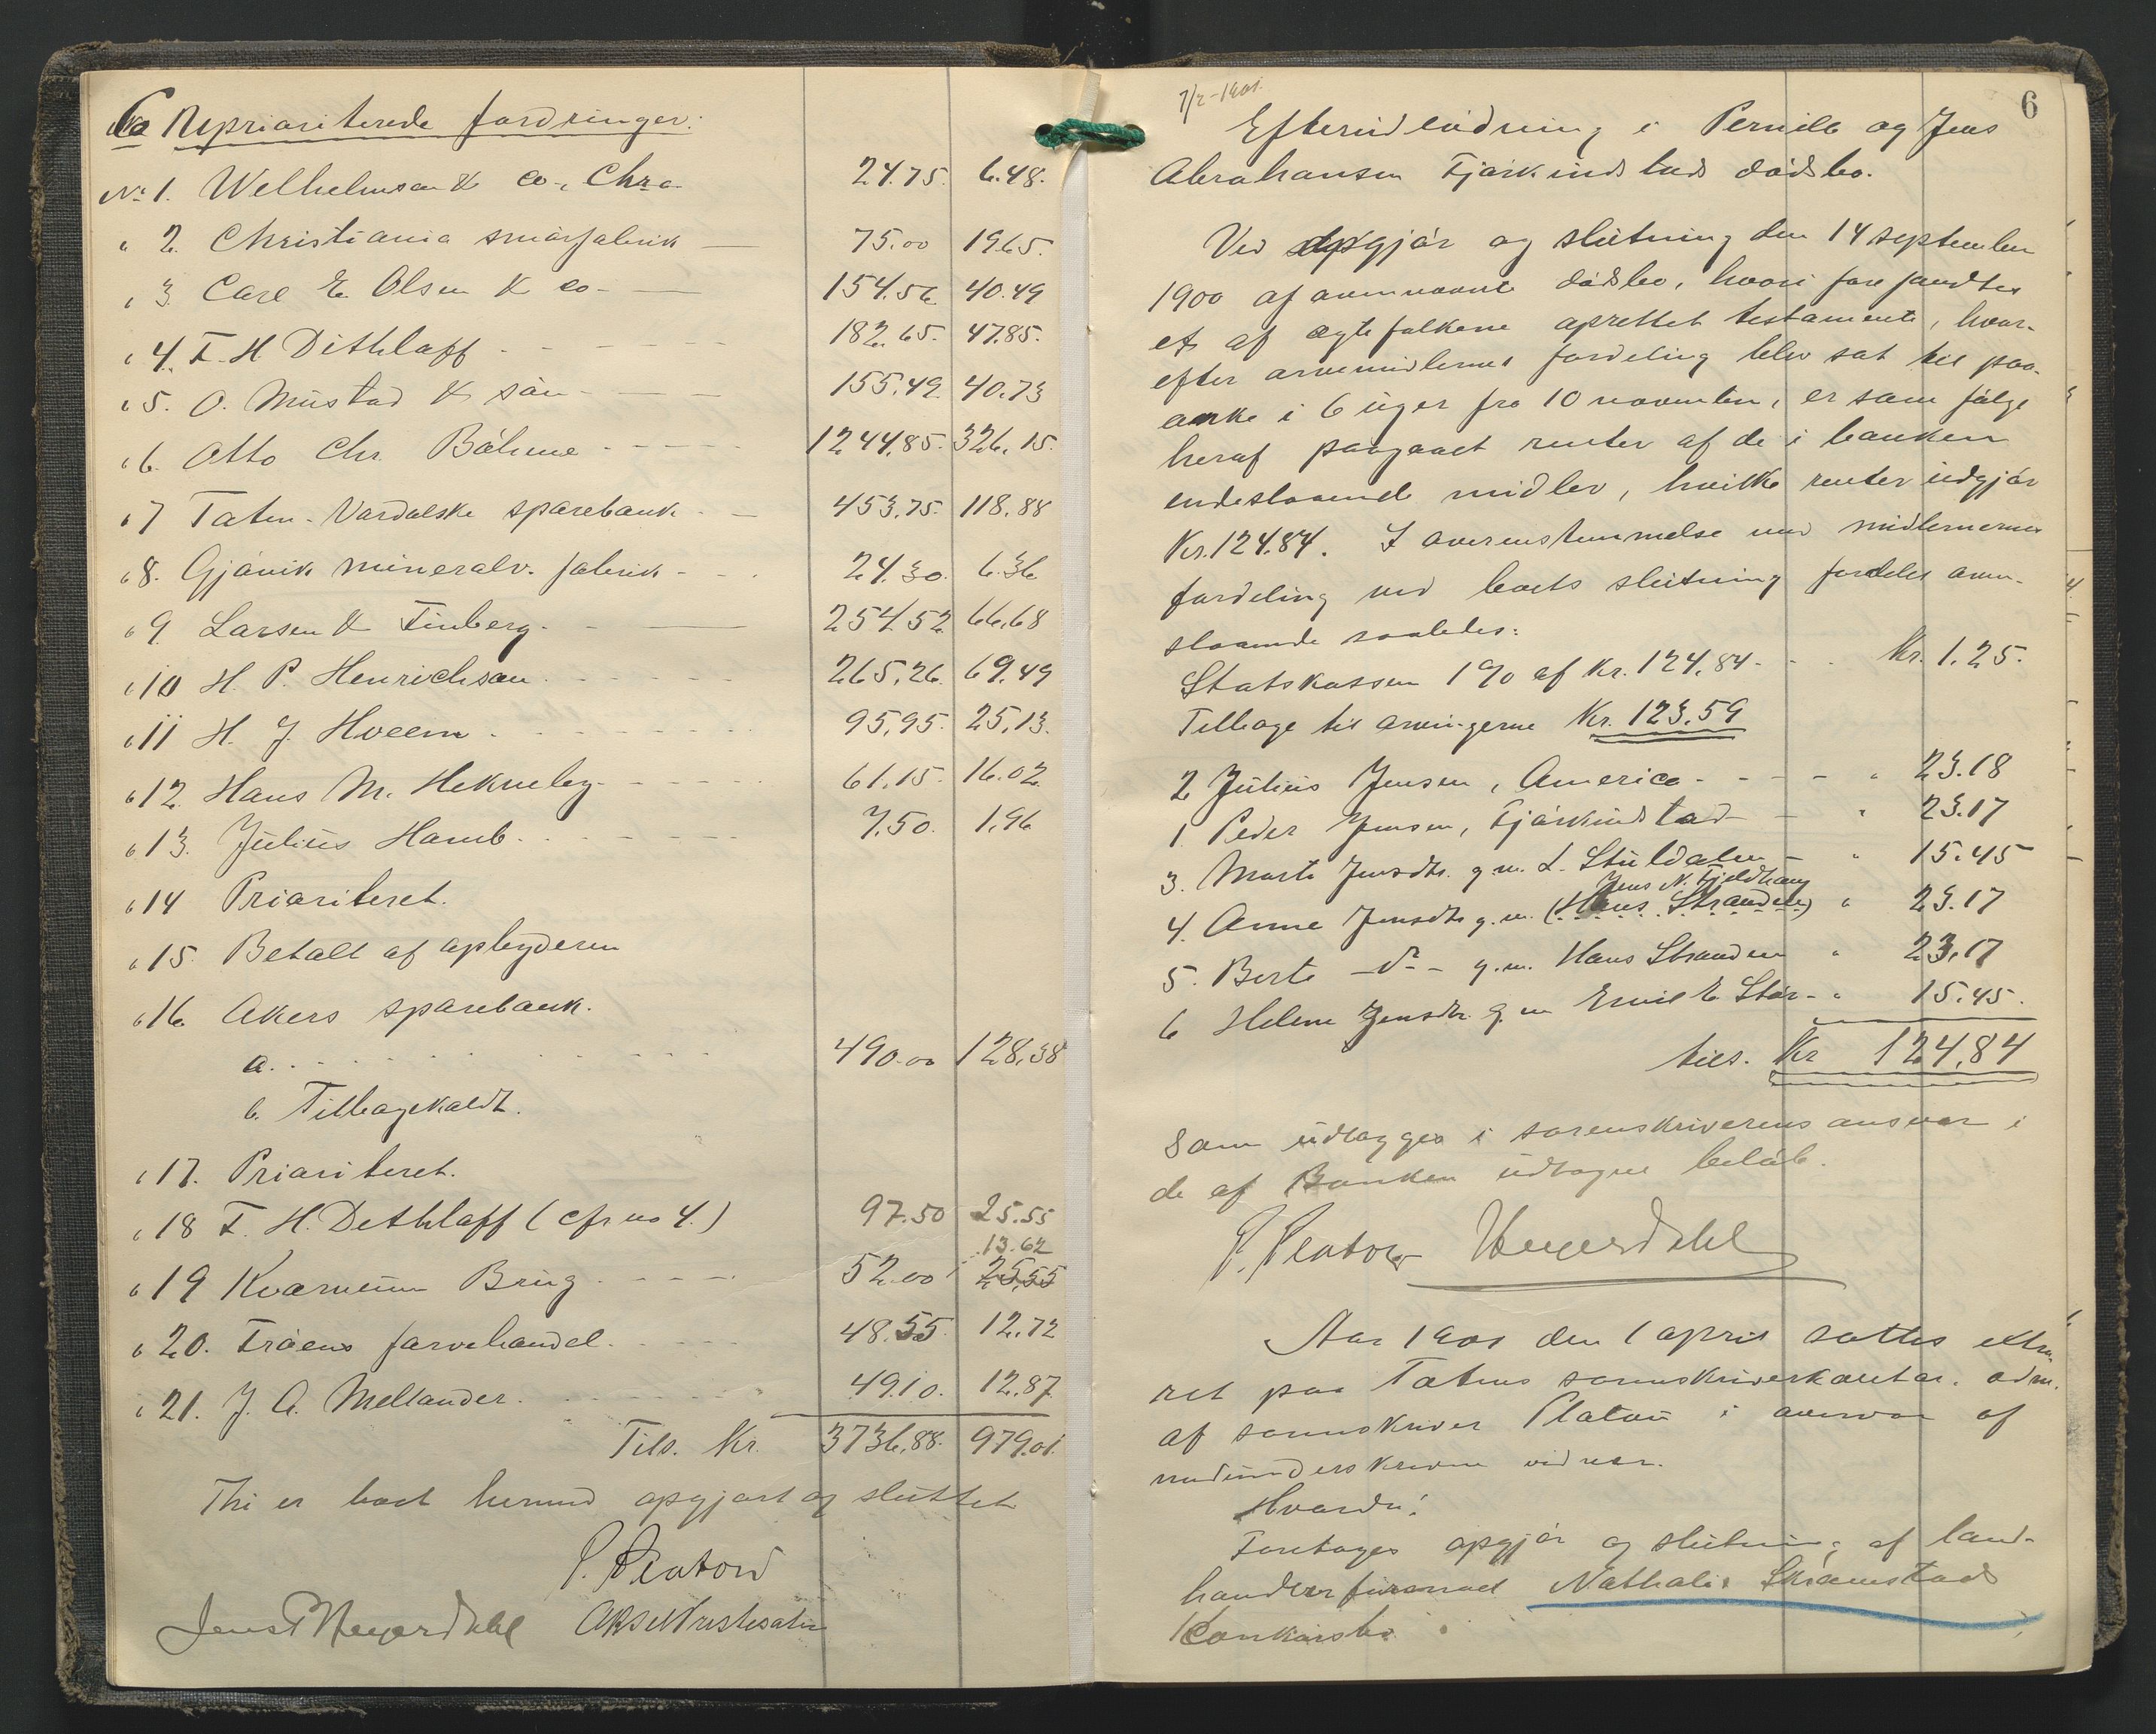 Uprioriterede fordringer:
No 1. Welhelmsen & co., Chra. 24.75. 6.48.
" 2. Christiania smørfabrik — 75.00 19.65.
" 3 Carl E. Olsen & co — 154.56 40.49
" 4. F. H Dithloff 182.65. 47.85.
" 5. O. Mustad & søn 155.49 40.73
" 6. Otto Chr. Bøhme 1244,85. 326.15.
" 7 Toten-Vardalske sparebank 453.75. 118.88
" 8. Gjøvik mineralv. fabrik 24.30. 6.36
" 9 Larsen & Finberg. 254.52 66.68
" 10 H. P. Henrichsen 265,26. 69.49
" 11 H. J. Hveem 95,95. 25,13.
" 12. Hans M. Hekneby 61.15. 16.02
" 13. Julius Hamb. 7.50. 1,96
" 14 Prioriteret.
" 15. Betalt af opbyderen
" 16. Akers sparebank.
a. 490.00 128,38
b. Tilbagekaldt.
" 17. Prioriteret.
" 18 F. H. Dethloff (cfr no 4.) 97.50 25.55
13.62
" 19 Kværnum Brug 52.00 25,55
" 20. Trøens farvehandel. 48.55. 12.72
" 21. J. A. Mellander. 49.10. 12.87.
Tils. Kr. 3736,88. 979.01.
Thi er boet hermed opgjort og sluttet
P. Platou
Jens P Heyerdahl
7/2-1901.
6
Efterindledning i Pernille og Jens
Abrahansen Fjørkindstads dødsbo.
Ved opgjør og slutning den 14 september
1900 af ovennævnte dødsbo, hvori forefandtes
et af ægtefolkene oprettet testamente, hvor-
efter arvemidlernes fordeling blev sat til paa-
anke i 6 uger fra 10 november, er som følge
heraf paagaaet renter af de i banken
indestaaende midler, hvilke renter udgjør
Kr. 124.84. I overensstemmelse med midlernes
fordeling ved boets slutning fordeles oven-
staaende saaledes:
Statskassen 1% af Kr. 124,84 - Kr. 1.25.
Tilbage til arvingerne Kr. 123,59
2 Julius Jensen, America - " 23.18
1. Peder Jensen, Fjørkindstad - " 23.17
3. Marte Jensdtr. g.m. L. Stuldalen - " 15.45
Jens N. Fjeldhaug
4. Anne Jensdtr g.m. (Hans Stranden) " 23.17
5. Berte -do- g.m. Hans Stranden " 23,17
6 Helene Jensdtr. g.m Emil E. Stør - " 15.45.
tils. Kr 124,84
Som udlægges i sorenskriverens ansvar i
de af Banken udtagne beløb.
P. Platou Heyerdahl
Aar 1901 den 1 april sattes extra
ret paa Totens sorenskriverkontor. adm.
af sorenskriver Platou i overvær af
medunderskrevne vidner.
Hvorda!
Foretoges opgjør og slutning af land-
handler Nathalie Skramstads
Konkursbo